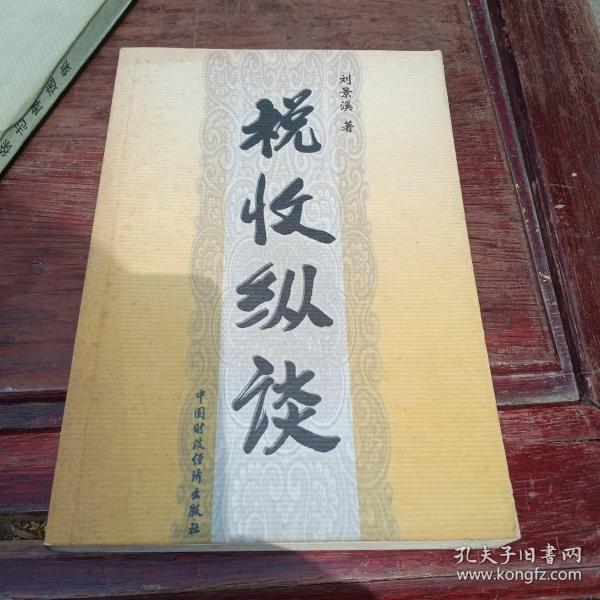 税收纵谈
刘景溪 著
中国财政经济出版社
孔夫子旧书网
www.kongfz.com